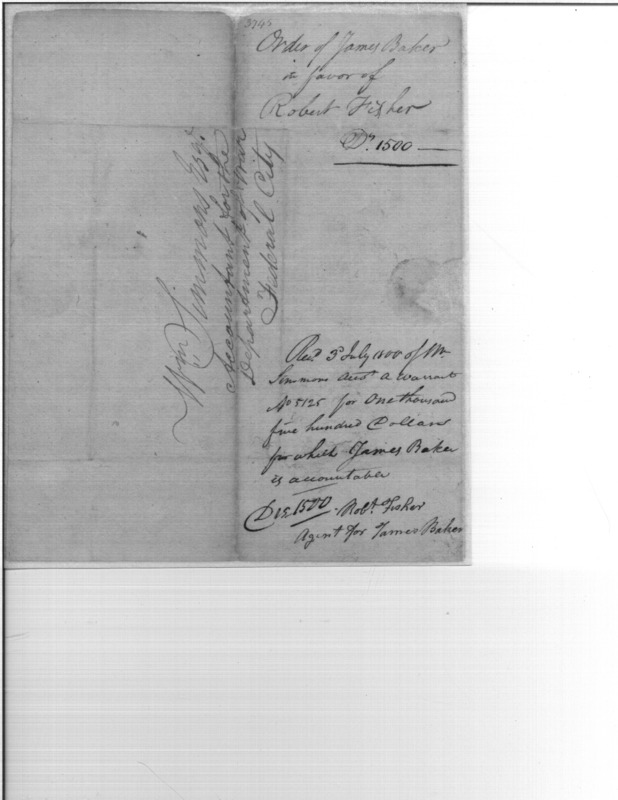 3745
Order of James Baker
in favor of
Robert Fisher
Drs. 1500 —
Wm Simmons Esqr.
Accountant for the
Department of War
Federal City
Recd. 3d July 1800 of Wm
Simmons Acct. a warrant
No 5125 for One thousand
five hundred Dollars
for which James Baker
is accountable
Dls 1500. Robt. Fisher
Agent for James Baker